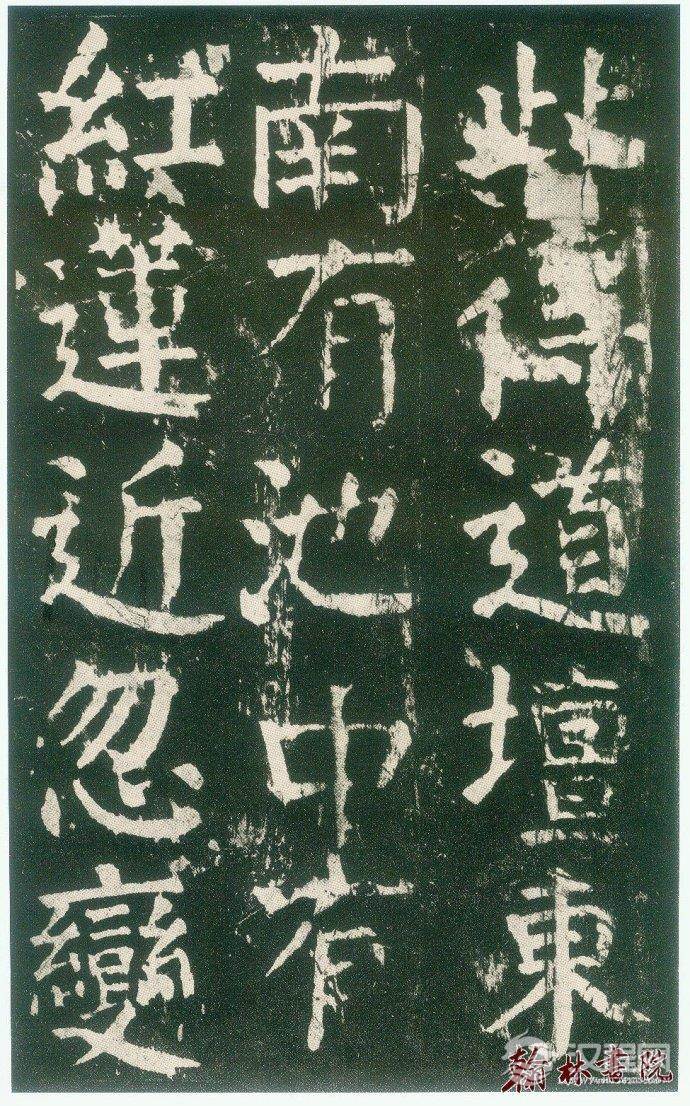 此得道壇東
南有池中有
紅蓮近忽變
汉程网
翰林書院